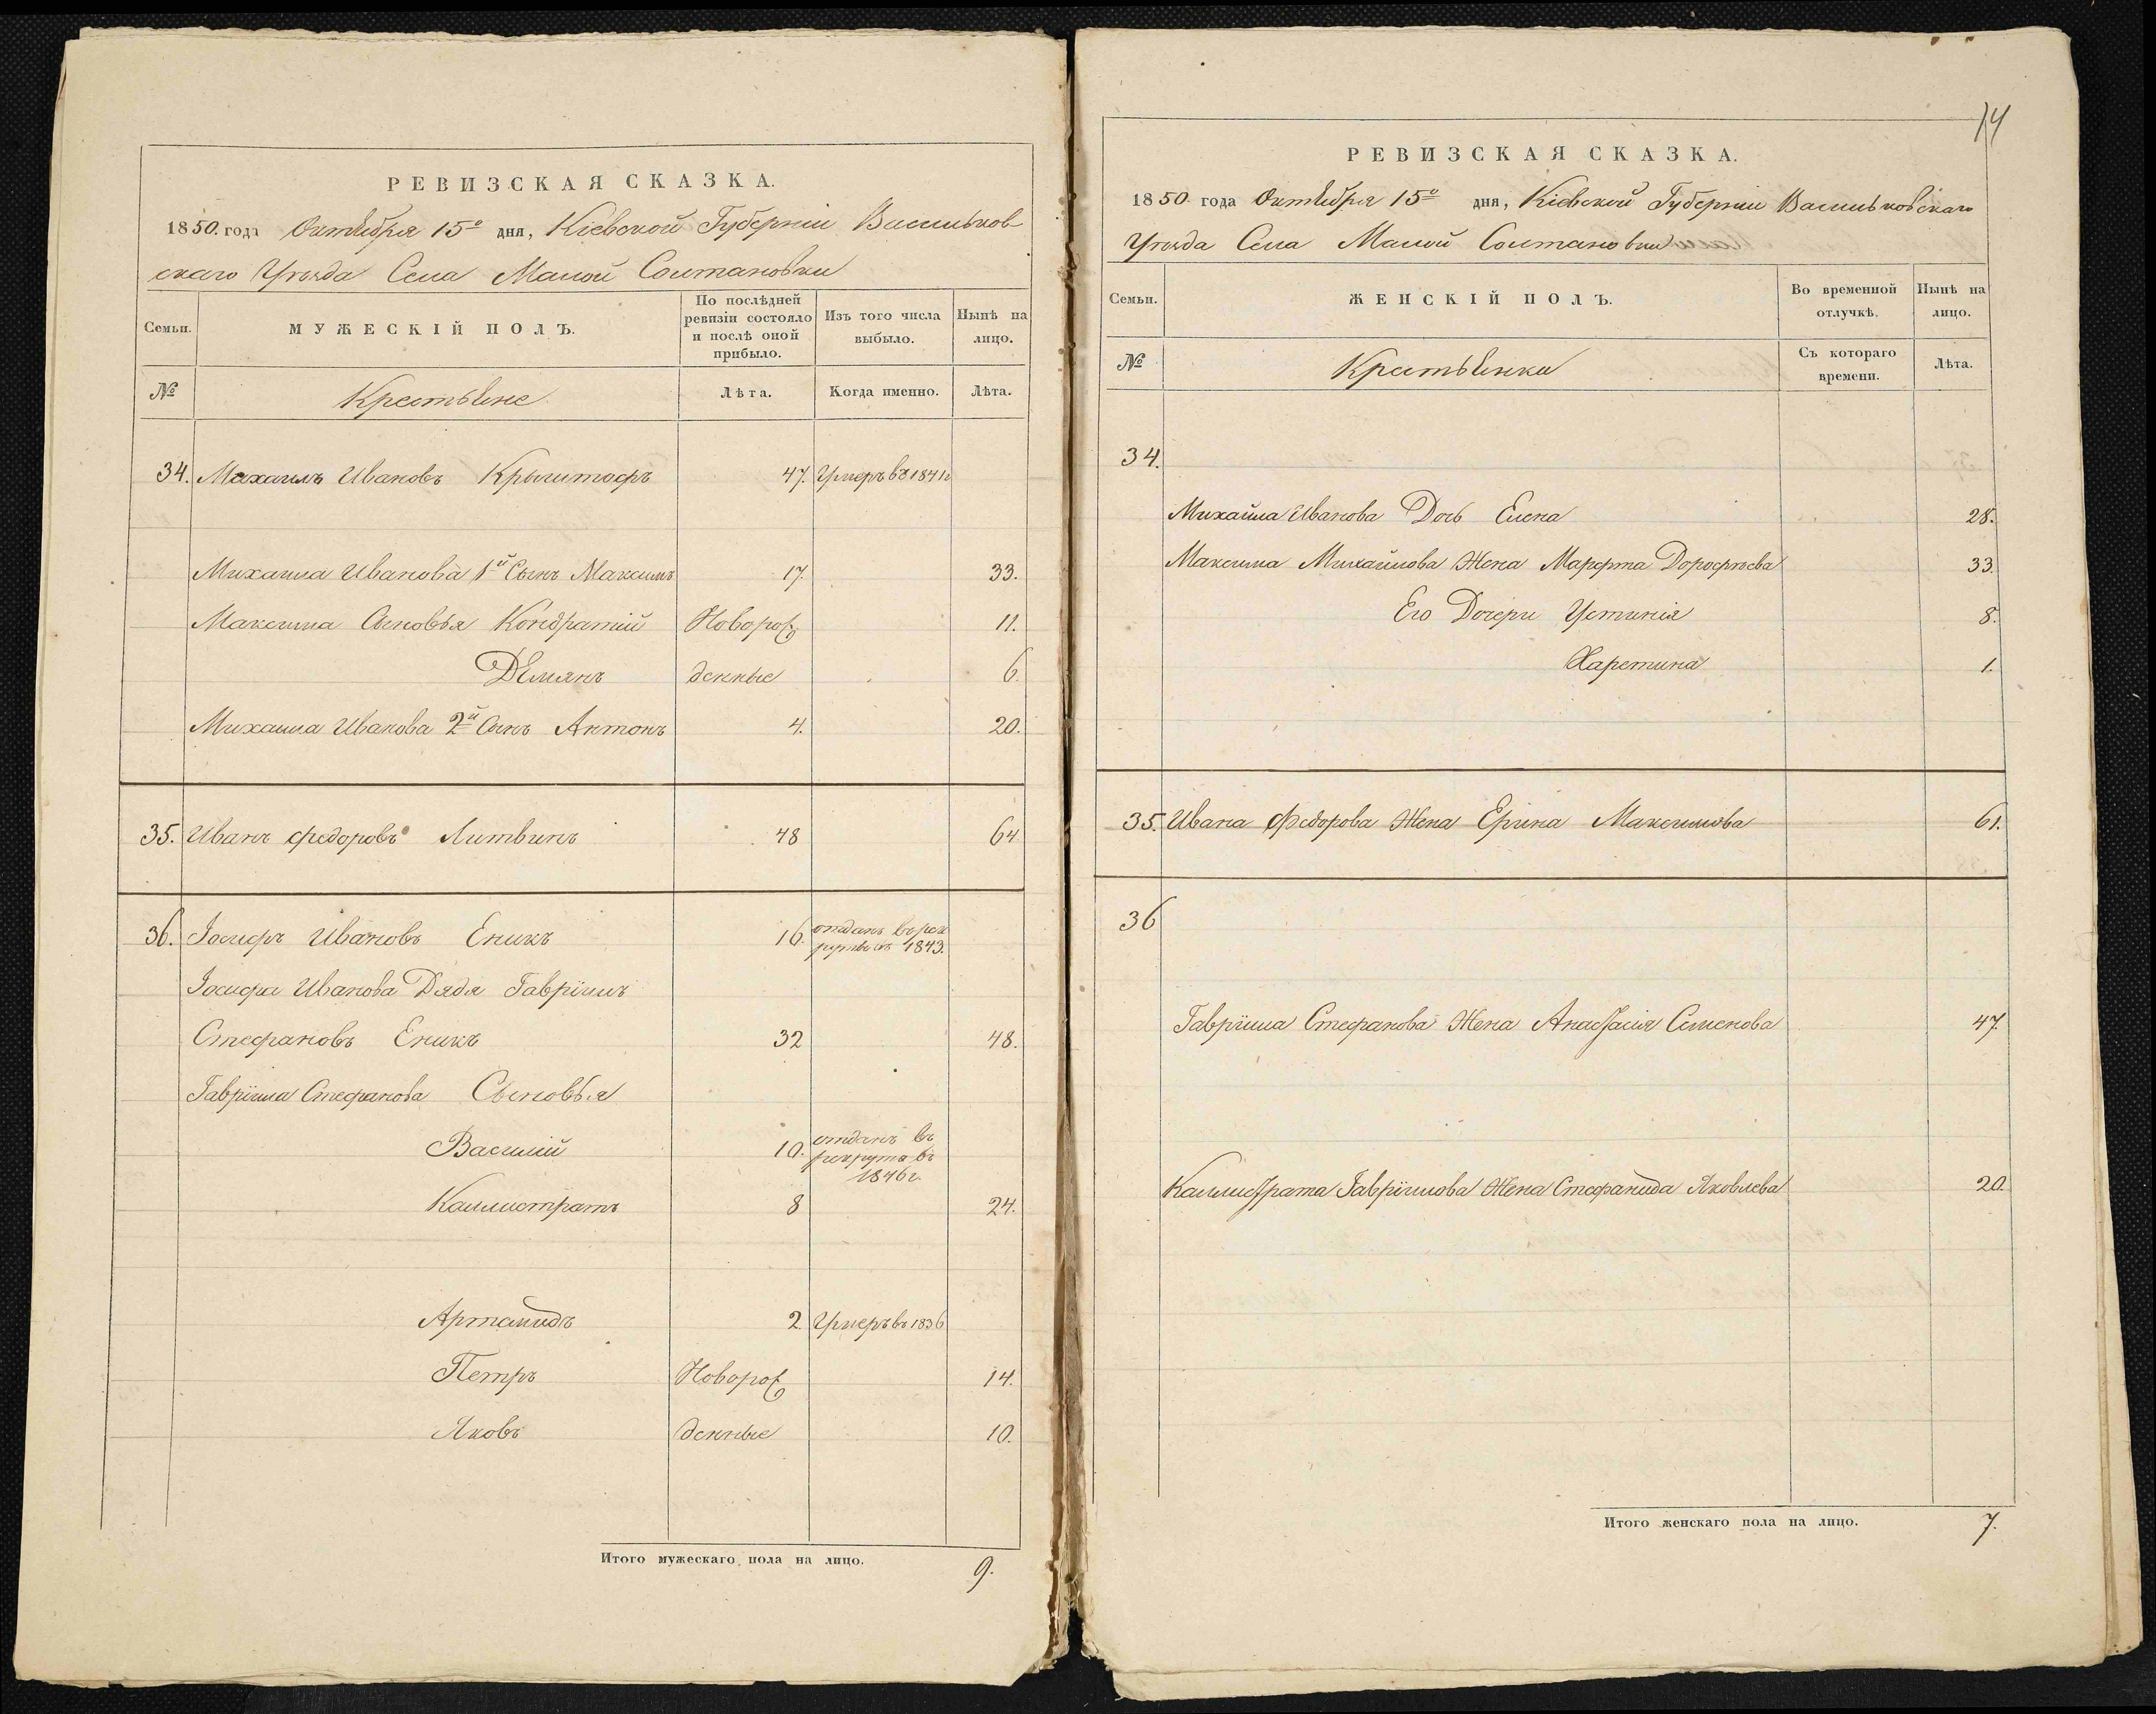 РЕВИЗСКАЯ СКАЗКА.
1850. года Октября 15го дня, Кіевской Губерніи Васильков-
скаго Уѣзда Села Малой Солтановки
Семьи.
МУЖЕСКІЙ ПОЛЪ.
По послѣдней ревизіи состояло и послѣ оной прибыло.
Изъ того числа выбыло.
Нынѣ на лицо.
№ Крестьяне Лѣта. Когда именно. Лѣта.
34. Михаилъ Ивановъ Крыштофъ 47. Умеръ въ 1841г
Михаила Иванова 1й Сынъ Максимъ 17. 33.
Максима Сыновья Кондратій Новорож 11.
Демянъ денные 6.
Михаила Иванова 2й Сынъ Антонъ 4. 20.
35. Иванъ Федоровъ Литвинъ 48 64
36. Іосифъ Ивановъ Еникъ 16. отданъ въ рек
руты въ 1843.
Іосифа Иванова Дядя Гавріилъ
Стефановъ Еникъ 32 48.
Гавріила Стефанова Сыновья
Василій 10. отданъ въ
рекрута въ
1846г.
Каллистратъ 8 24.
Артамидъ 2 Умеръ въ 1836
Петръ Новорож 14.
Яковъ денные 10.
Итого мужескаго пола на лицо. 9.
14
РЕВИЗСКАЯ СКАЗКА.
1850 года Октября 15го дня, Кіевской Губерніи Васильковскаго
Уѣзда Села Малой Солтановки
Семьи.
ЖЕНСКІЙ ПОЛЪ.
Во временной отлучкѣ.
Нынѣ на лицо.
№ Крестьянки Съ котораго времени. Лѣта.
34.
Михайла Иванова Дочь Елена 28.
Максима Михайлова Жена Марфта Дорофѣева 33.
Его Дочери Устинія 8.
Харетина 1.
35. Ивана Федорова Жена Ерина Максимова 61.
36
Гавріила Стефанова Жена Анастасія Семенова 47.
Каллистрата Гавріилова Жена Стефанида Яковлева 20.
Итого женскаго пола на лицо. 7.